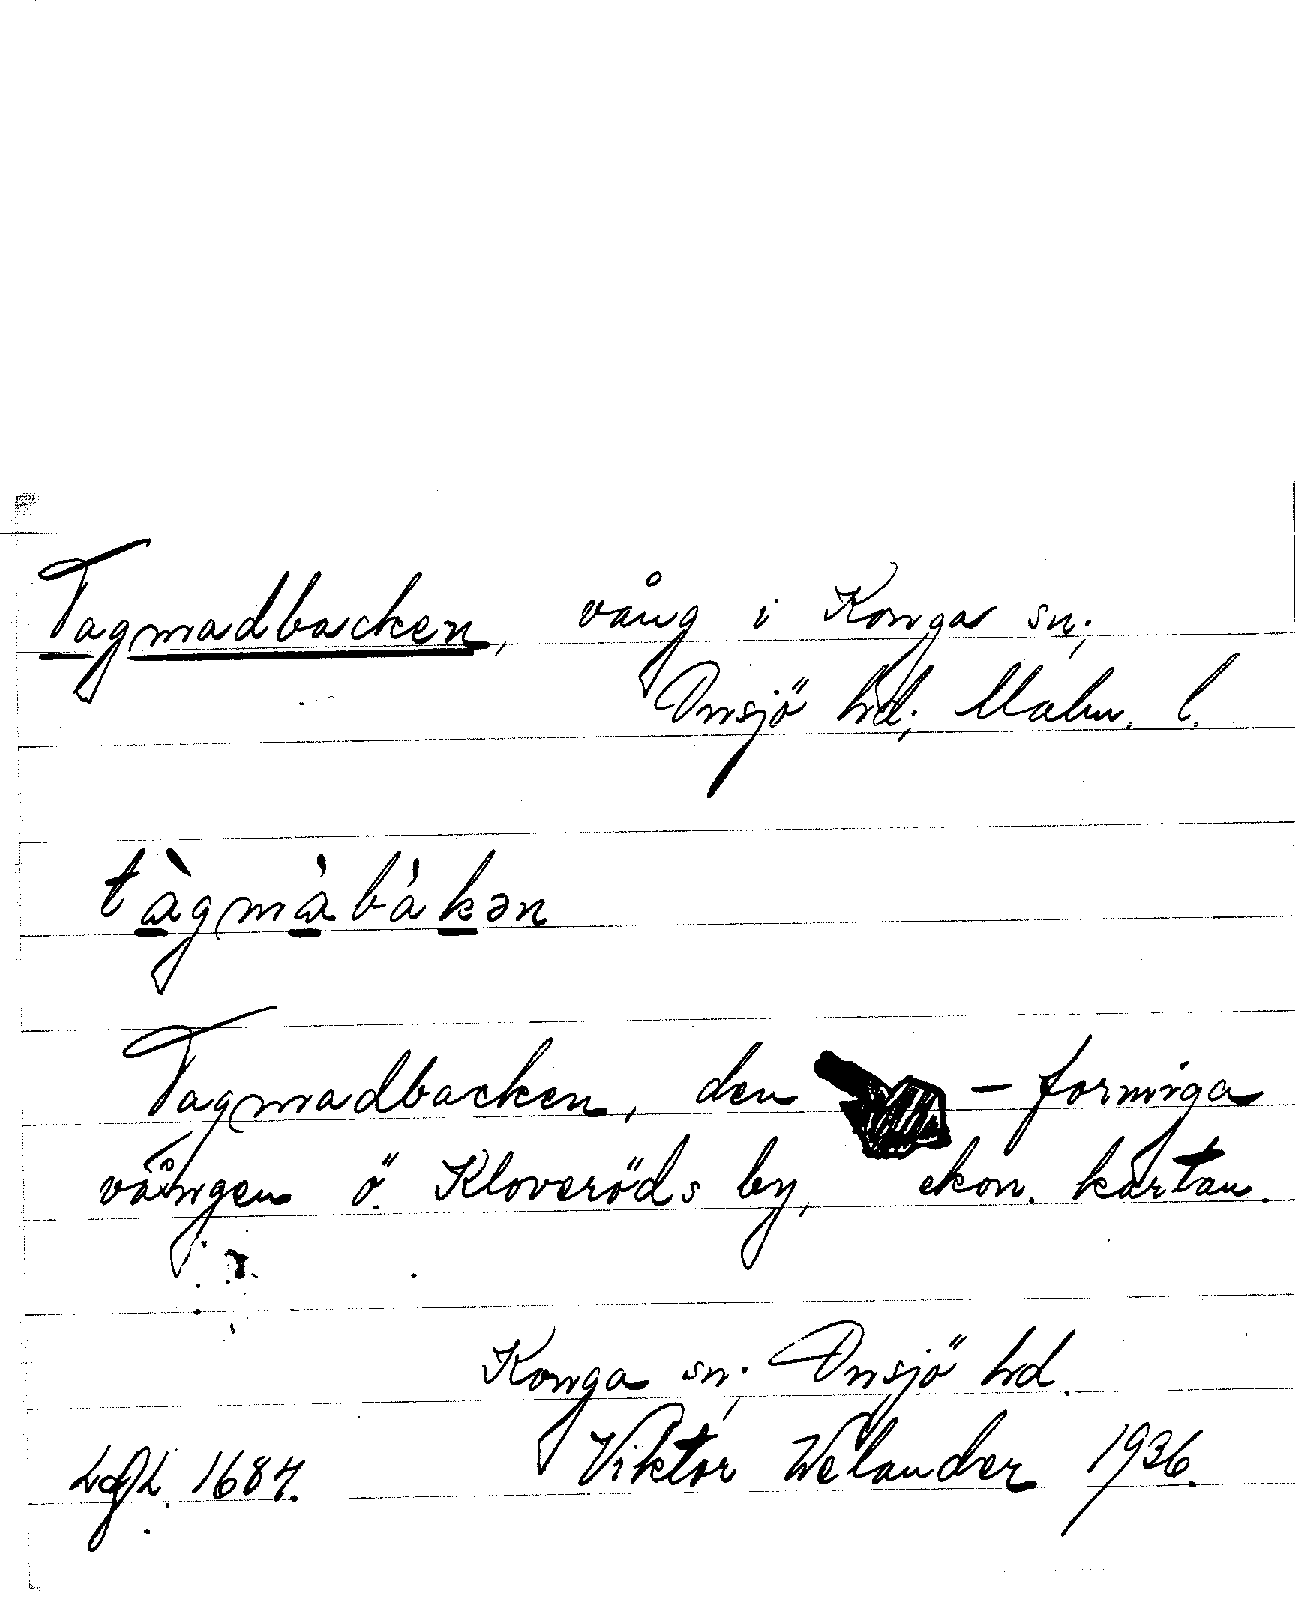 Tagmadbacken, vång i Konga sn;
Onsjö hd; Malm. l.
tàgmàbákən
Tagmadbacken, den – formiga
vången ö. Kloveröds by, ekon. kartan.
Konga sn; Onsjö hd.
Viktor Welander 1936.
1687.